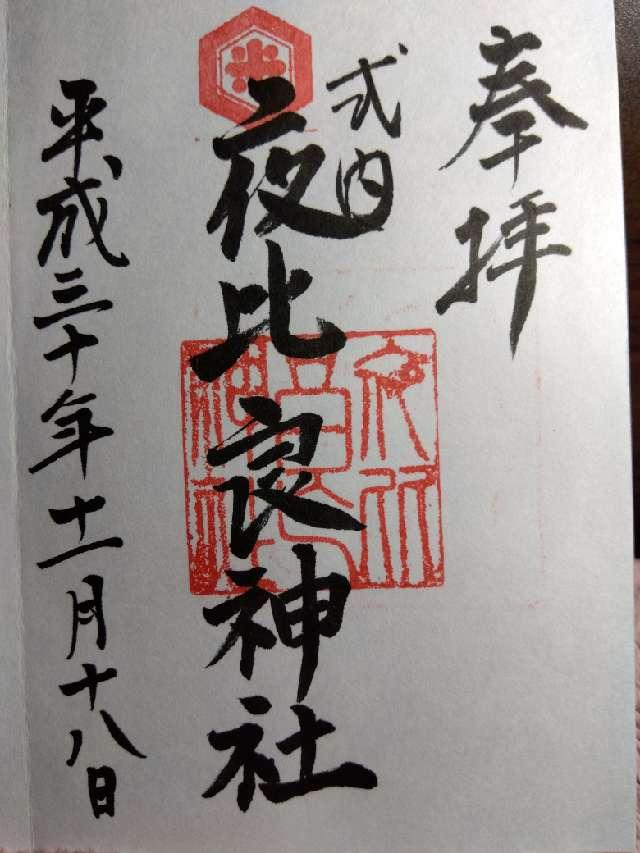 奉拝
式内
夜比良神社
平成三十年十一月十八日
夜比良神社